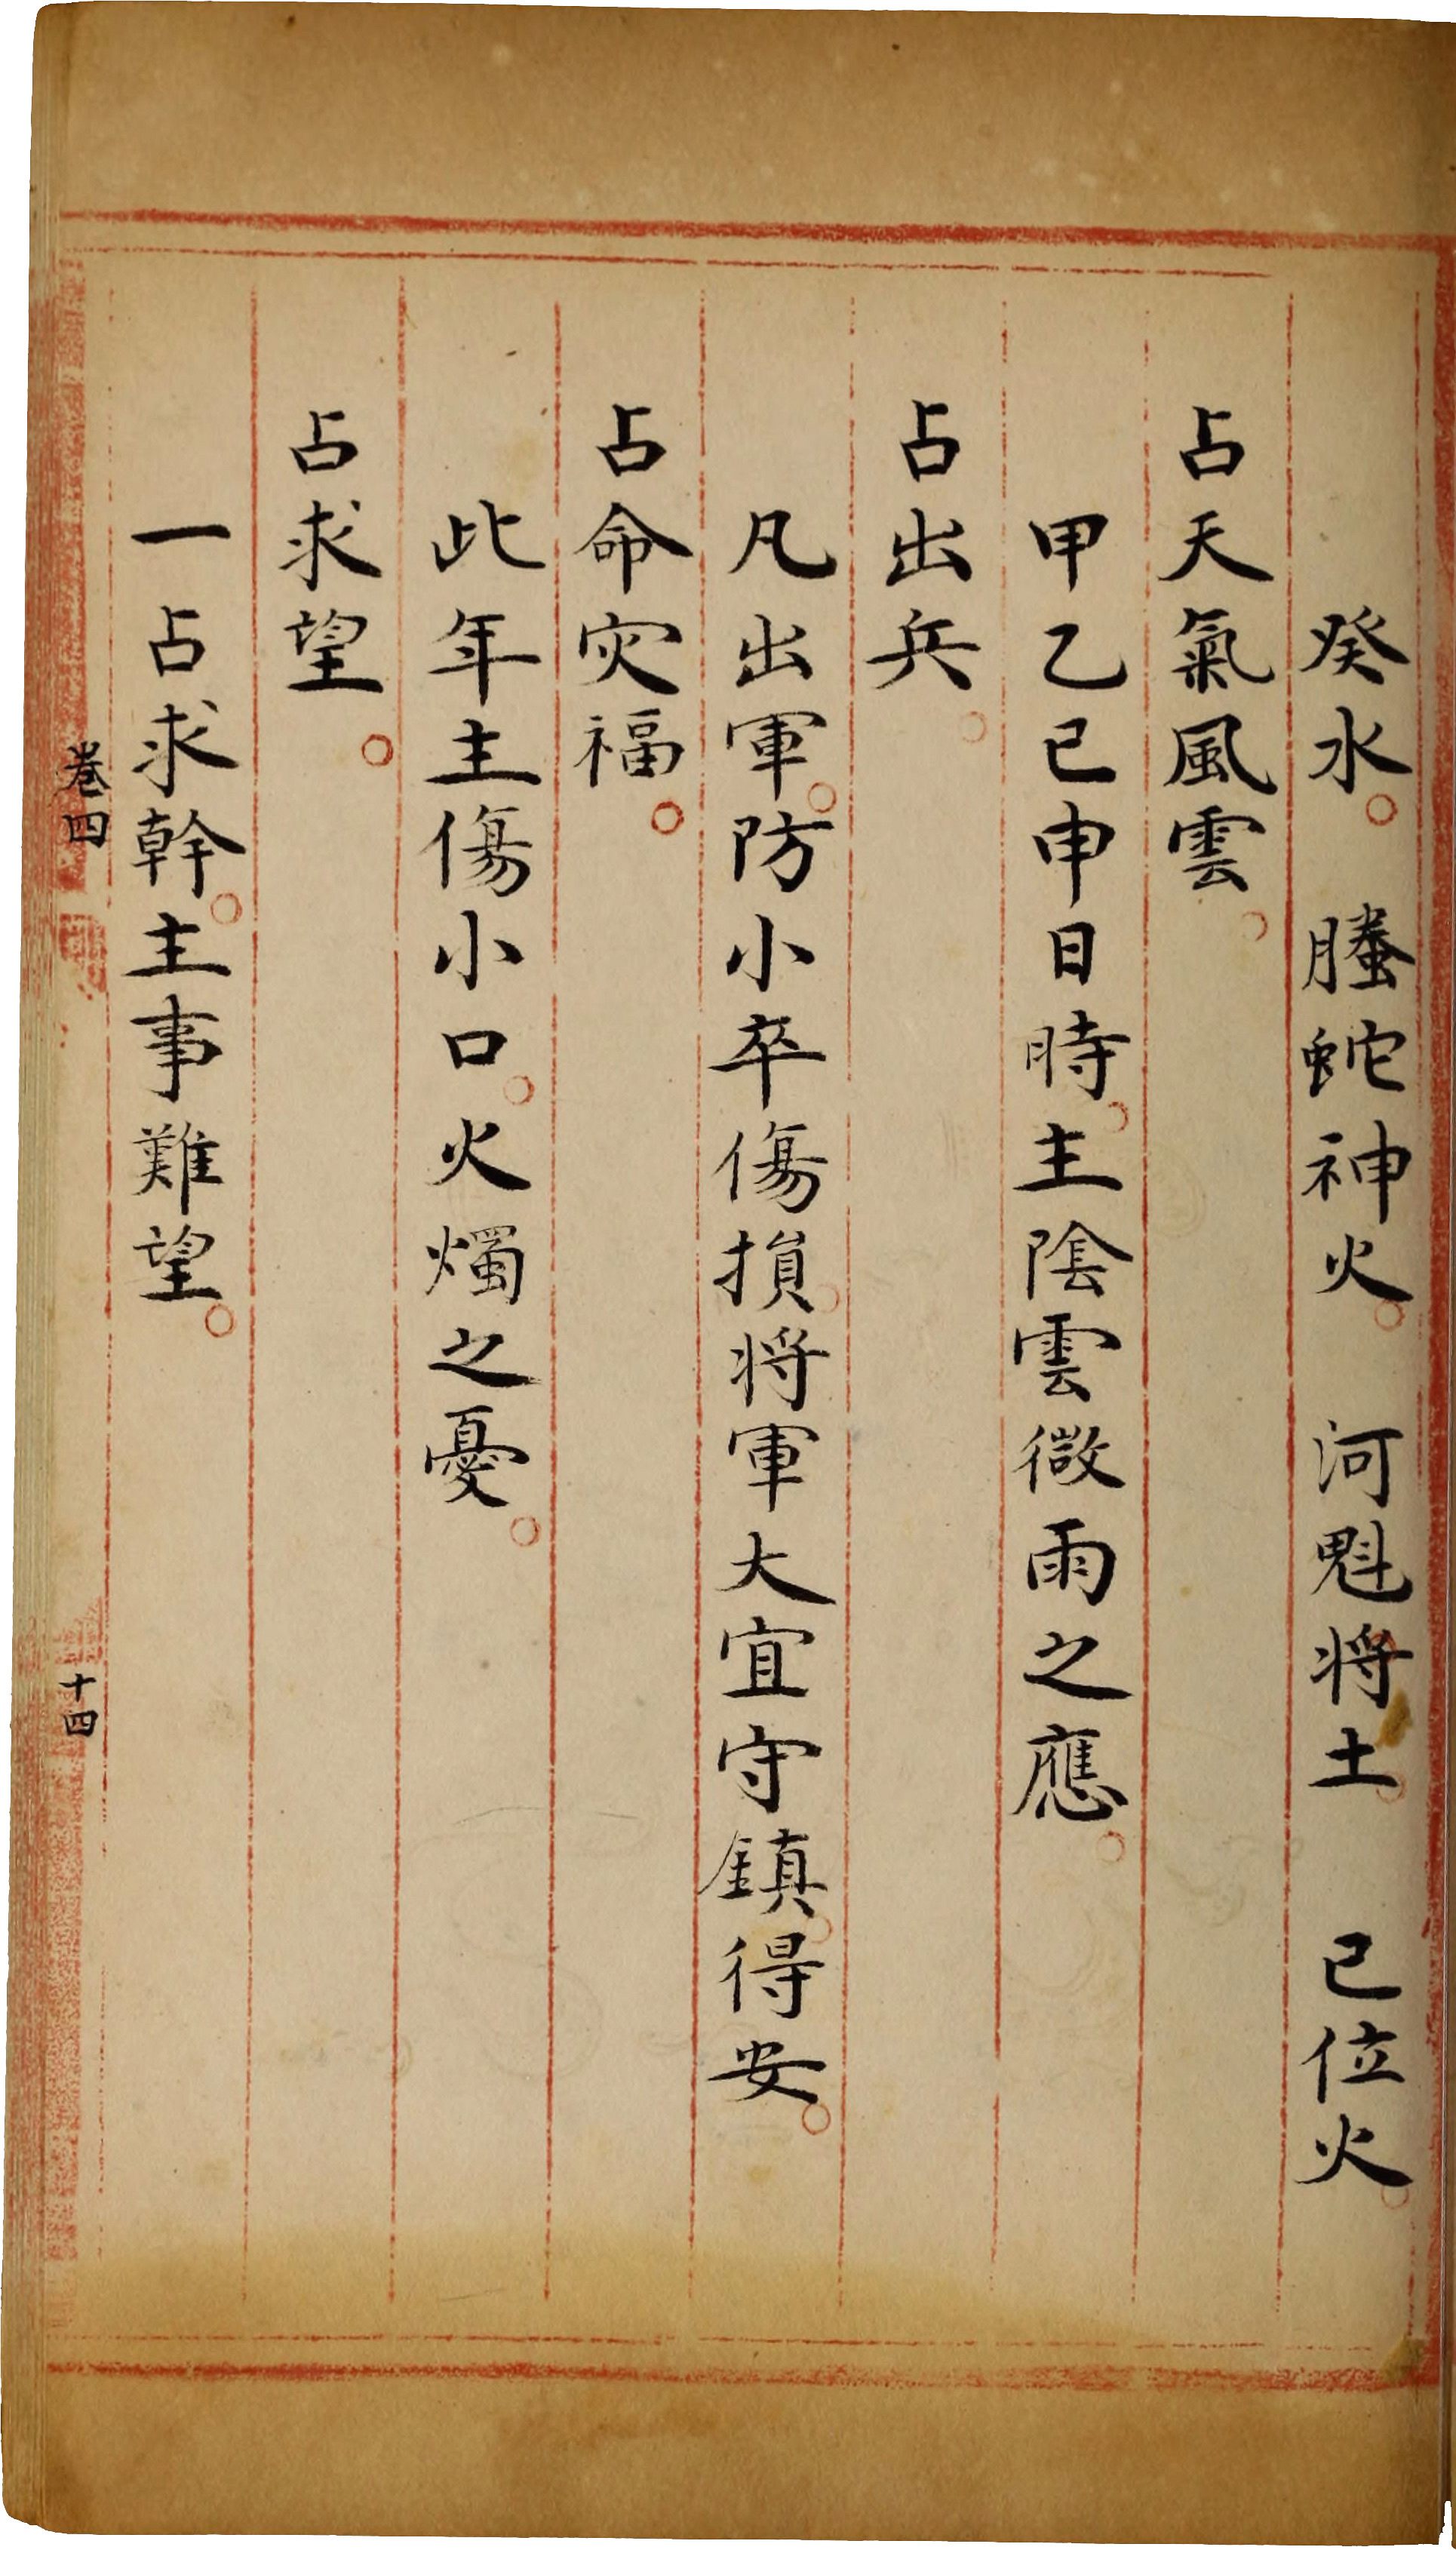 癸水。　螣蛇神火。　河魁将土。　巳位火。
占天氣風雲。
甲乙巳申日時。主隂雲微雨之應。
占出兵。
凡出軍。防小卒傷損。将軍大宜守鎮。得安。
占命灾福。
此年主傷小口。火燭之憂。
占求望。
一占求幹。主事難望。
卷四
十四